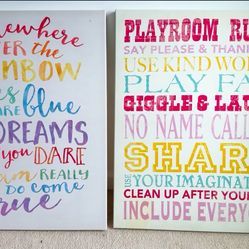 mewhere
ER the
NBOW
es
ARE blue
DREAMS
you DARE
am REALLY
do come
rue
PLAYROOM RU
SAY PLEASE & THAN
USE KIND WO
PLAY FA
GIGGLE & LAU
NO NAME CALL
SHAR
USE YOUR IMAGINAT
CLEAN UP AFTER YOUR
INCLUDE EVERY